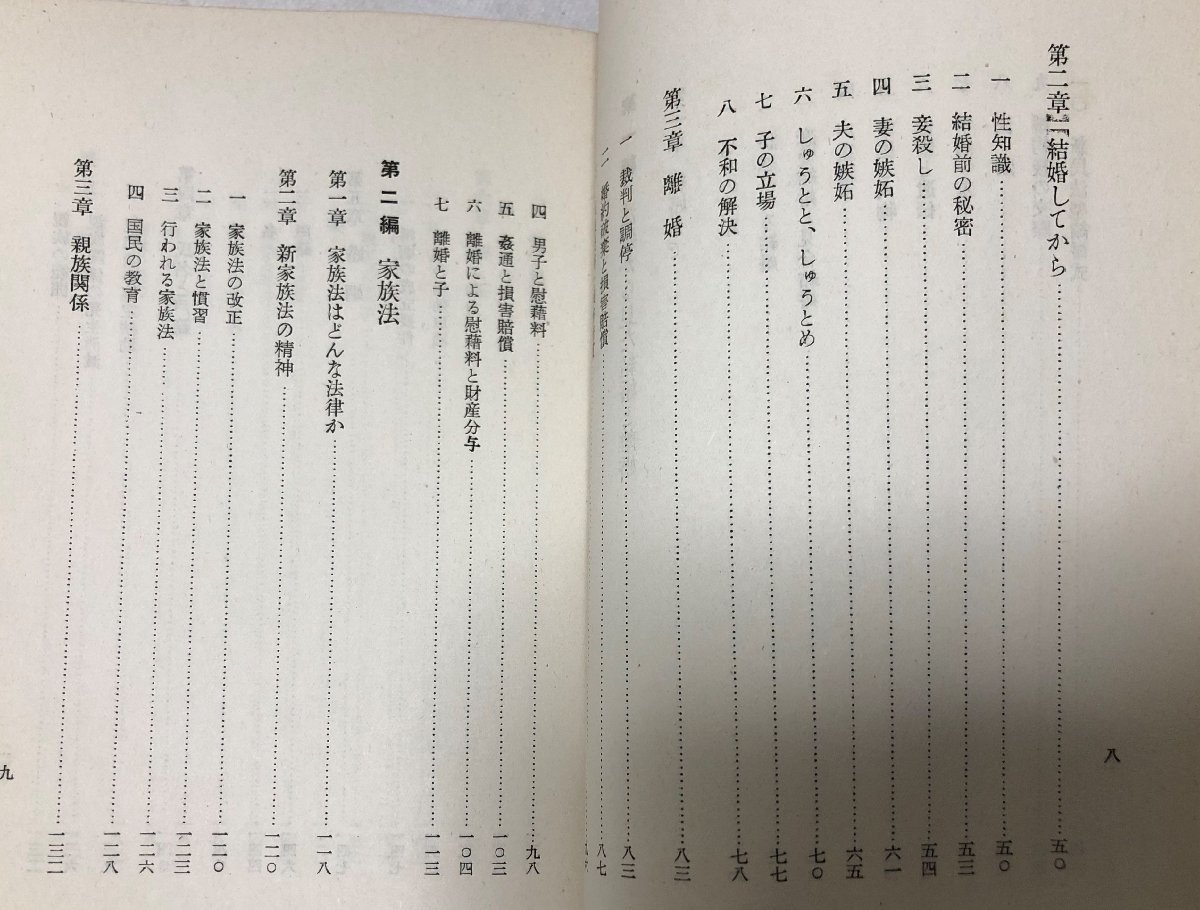 第二章 結婚してから……五〇
一 性知識……五〇
二 結婚前の秘密……五三
三 妾殺し……五四
四 妻の嫉妬……六一
五 夫の嫉妬……六五
六 しゅうとと、しゅうとめ……七〇
七 子の立場……七七
八 不和の解決……七八
第三章 離婚……八三
一 裁判と調停……八三
二 婚約破棄と損害賠償……八七
八
四 男子と慰藉料……九八
五 姦通と損害賠償……一〇三
六 離婚による慰藉料と財産分与……一〇四
七 離婚と子……一一三
第二編 家族法
第一章 家族法はどんな法律か……一一八
第二章 新家族法の精神……一二〇
一 家族法の改正……一二〇
二 家族法と慣習……一二三
三 行われる家族法……一二六
四 国民の教育……一二八
第三章 親族関係……一三二
九